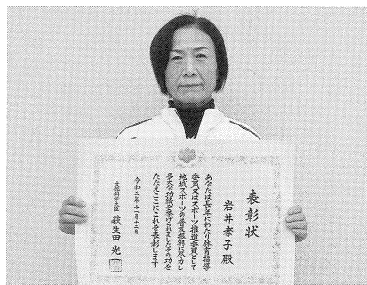 表彰状
岩井孝子殿
あなたは長年にわたり体育指導
委員又はスポーツ推進委員として
地域スポーツの普及振興に尽力し
多大な功績を挙げられましたその功を
たたえここにこれを表彰します
令和二年十一月十二日
文部科学大臣 萩生田光一